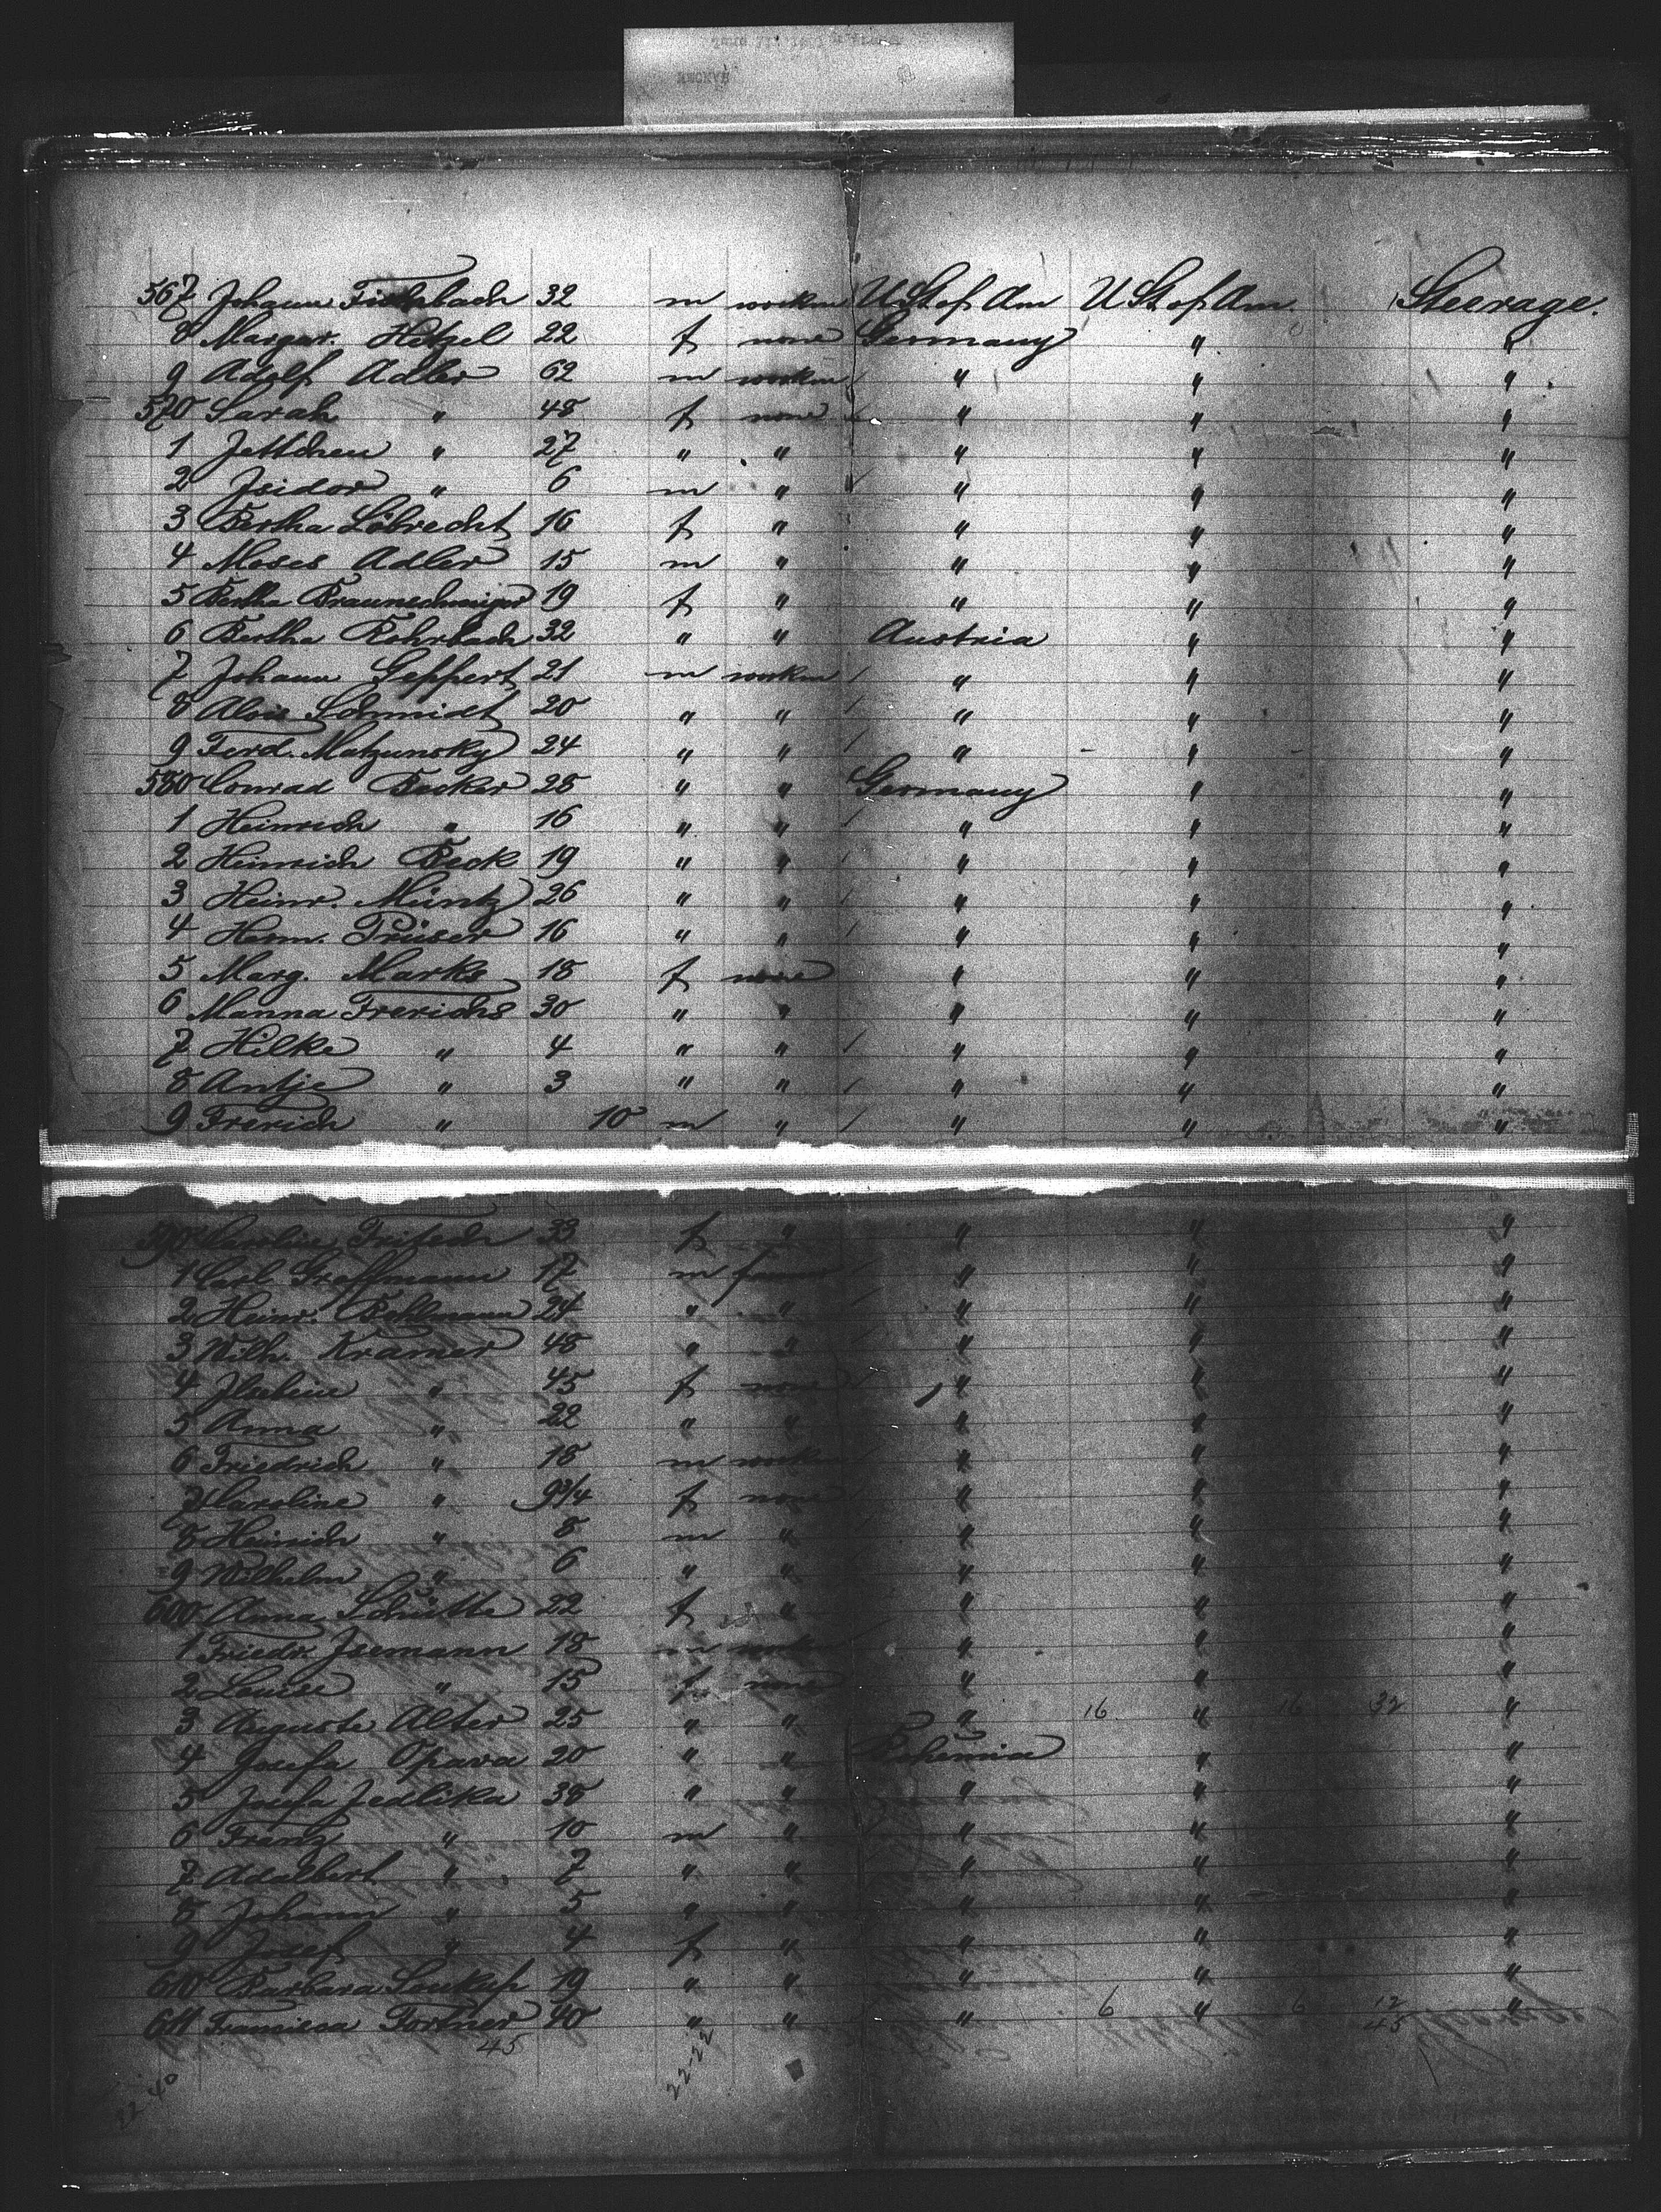 567 Johann Fischbach 32 m workm U St of Am U St of Am. Steerage.
8 Margar. Hetzel 22 f none Germany " "
9 Adolf Adler 62 m workm " " "
570 Sarah " 48 f none " " "
1 Jettchen " 27 " " " " "
2 Isidor " 6 m " " " "
3 Bertha Löbrecht 16 f " " " "
4 Moses Adler 15 m " " " "
5 Bertha Braunschweiger 19 f " " " "
6 Bertha Rohrbach 32 " " Austria " "
7 Johann Geppert 21 m workm " " "
8 Alois Schmidt 20 " " " " "
9 Ferd. Matzunsky 24 " " " " "
580 Conrad Becker 28 " " Germany " "
1 Heinrich " 16 " " " " "
2 Heinrich Beck 19 " " " " "
3 Heinr. Müntz 26 " " " " "
4 Herm. Prüser 16 " " " " "
5 Marg. Marks 18 f none " " "
6 Manna Frerichs 30 " " " " "
7 Hilke " 4 " " " " "
8 Antje " 3 " " " " "
9 Frerich " 10 m " " " "
590 Caroline Fritsch 33 f " " " "
1 Carl Graffmann 17 m farmer " " "
2 Heinr. Bohlmann 24 " " " " "
3 Wilh. Kramer 48 " " " " "
4 " 45 f none " " "
5 Anna " 22 " " " " "
6 Friedrich " 18 m workm " " "
7 Caroline " 9 3/4 f none " " "
8 Heinrich " 8 m " " " "
9 Wilhelm " 6 " " " " "
600 Anna Schütte 22 f " " " "
1 Friedr. Isemann 18 m workm " " "
2 Louise " 15 f none " " "
3 Auguste Alter 25 " " " 16 " 16 32 "
4 Josefa Opava 20 " " Bohemia " "
5 Josefa Jedlika 38 " " " " "
6 Franz " 10 m " " " "
7 Adalbert " 7 " " " " "
8 Johann " 5 " " " " "
9 Josef " 4 f " " " "
610 Barbara Soukup 19 " " " " "
611 Francisca Fortner 40 " " " 6 " 6 12 "
45 45
22-22
22-40